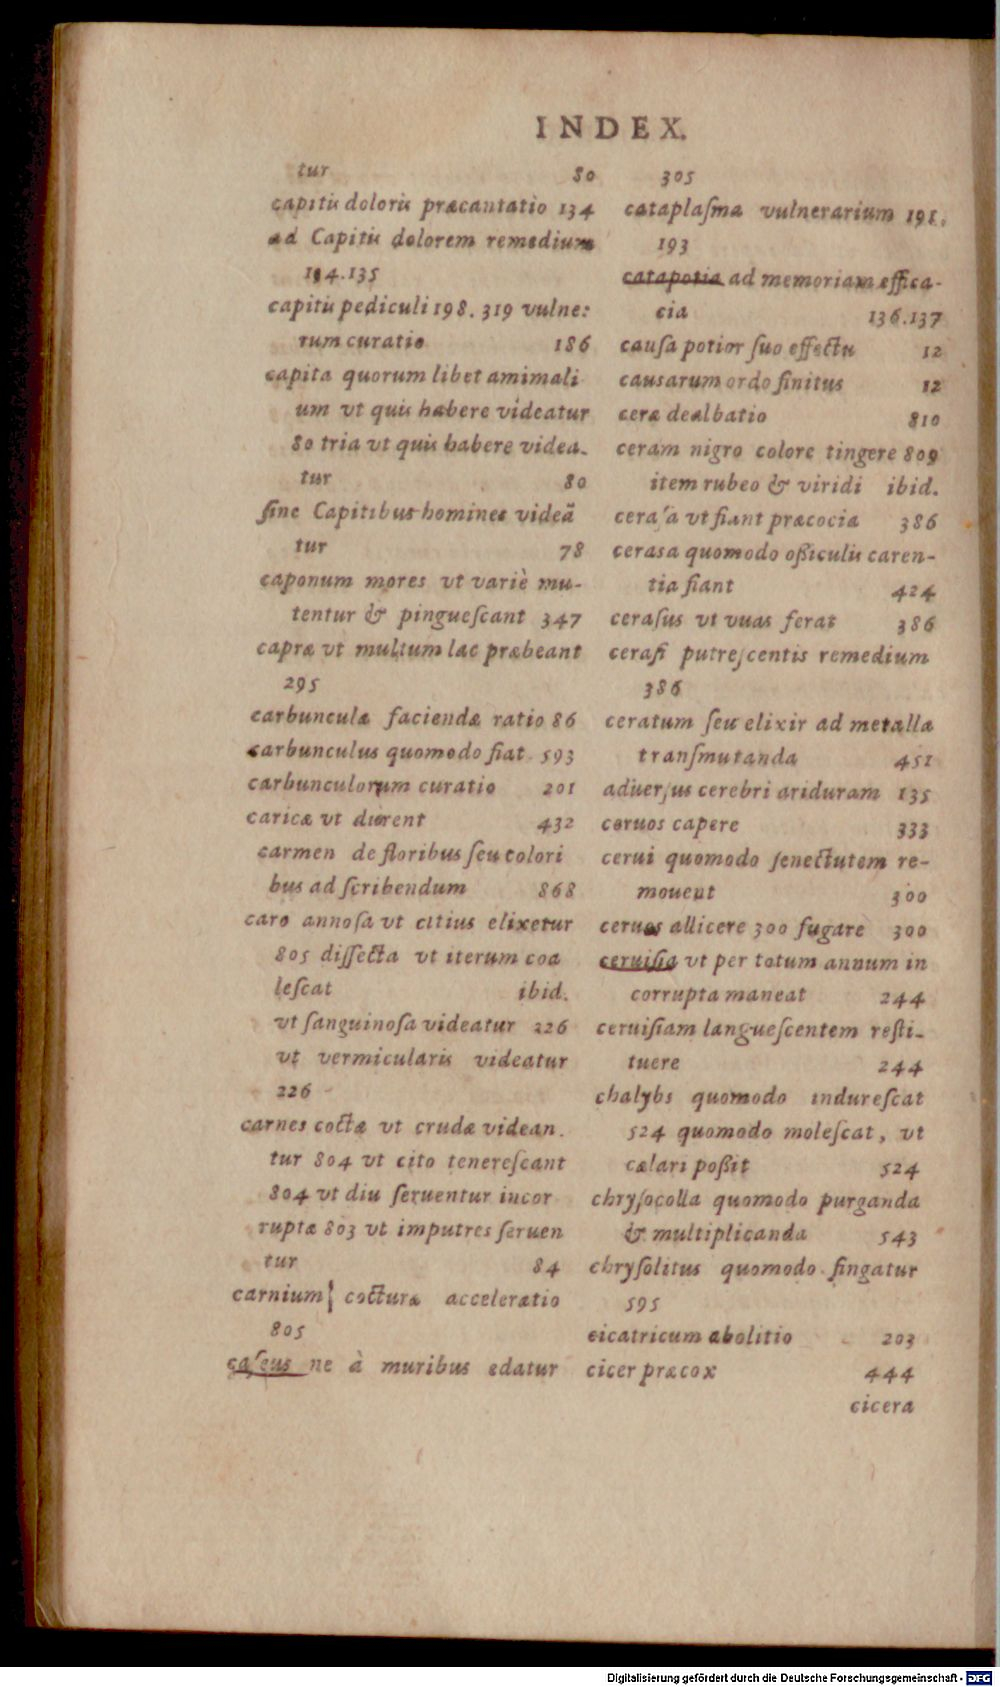 INDEX.
tur 80
capitis doloris præcantatio 134
ad Capitis dolorem remedium
134.135
capitis pediculi 198. 319 vulne:
rum curatio 186
capita quorum libet amimali
um vt quis habere videatur
80 tria vt quis habere videa-
tur 80
ſine Capitibus homines videã
tur 78
caponum mores vt variè mu-
tentur & pingueſcant 347
capræ vt multum lac præbeant
295
carbunculæ faciendæ ratio 86
carbunculus quomodo fiat 593
carbunculorum curatio 201
caricæ vt durent 432
carmen de floribus ſeu colori
bus ad ſcribendum 868
caro annoſa vt citius elixetur
805 diſſecta vt iterum coa
leſcat ibid.
vt ſanguinoſa videatur 226
vt vermicularis videatur
226
carnes coctæ vt crudæ videan.
tur 804 vt cito tenereſcant
804 vt diu ſeruentur incor
ruptæ 803 vt imputres ſeruen
tur 84
carnium coctura acceleratio
805
caſeus ne à muribus edatur
305
cataplaſma vulnerarium 191.
193
catapotia ad memoriam effica-
cia 136.137
cauſa potior ſuo effectu 12
causarum ordo finitus 12
ceræ dealbatio 810
ceram nigro colore tingere 809
item rubeo & viridi ibid.
ceraſa vt fiant præcocia 386
cerasa quomodo oßiculis caren-
tia fiant 424
ceraſus vt vuas ferat 386
ceraſi putreſcentis remedium
386
ceratum ſeu elixir ad metalla
tranſmutanda 451
aduerſus cerebri ariduram 135
ceruos capere 333
cerui quomodo ſenectutem re-
moueat 300
ceruos allicere 300 fugare 300
ceruiſia vt per totum annum in
corrupta maneat 244
ceruiſiam langueſcentem reſti-
tuere 244
chalybs quomodo indureſcat
524 quomodo moleſcat, vt
cælari poßit 524
chryſocolla quomodo purganda
& multiplicanda 543
chryſolitus quomodo fingatur
595
cicatricum abolitio 203
cicer præcox 444
cicera
Digitalisierung gefördert durch die Deutsche Forschungsgemeinschaft - DFG